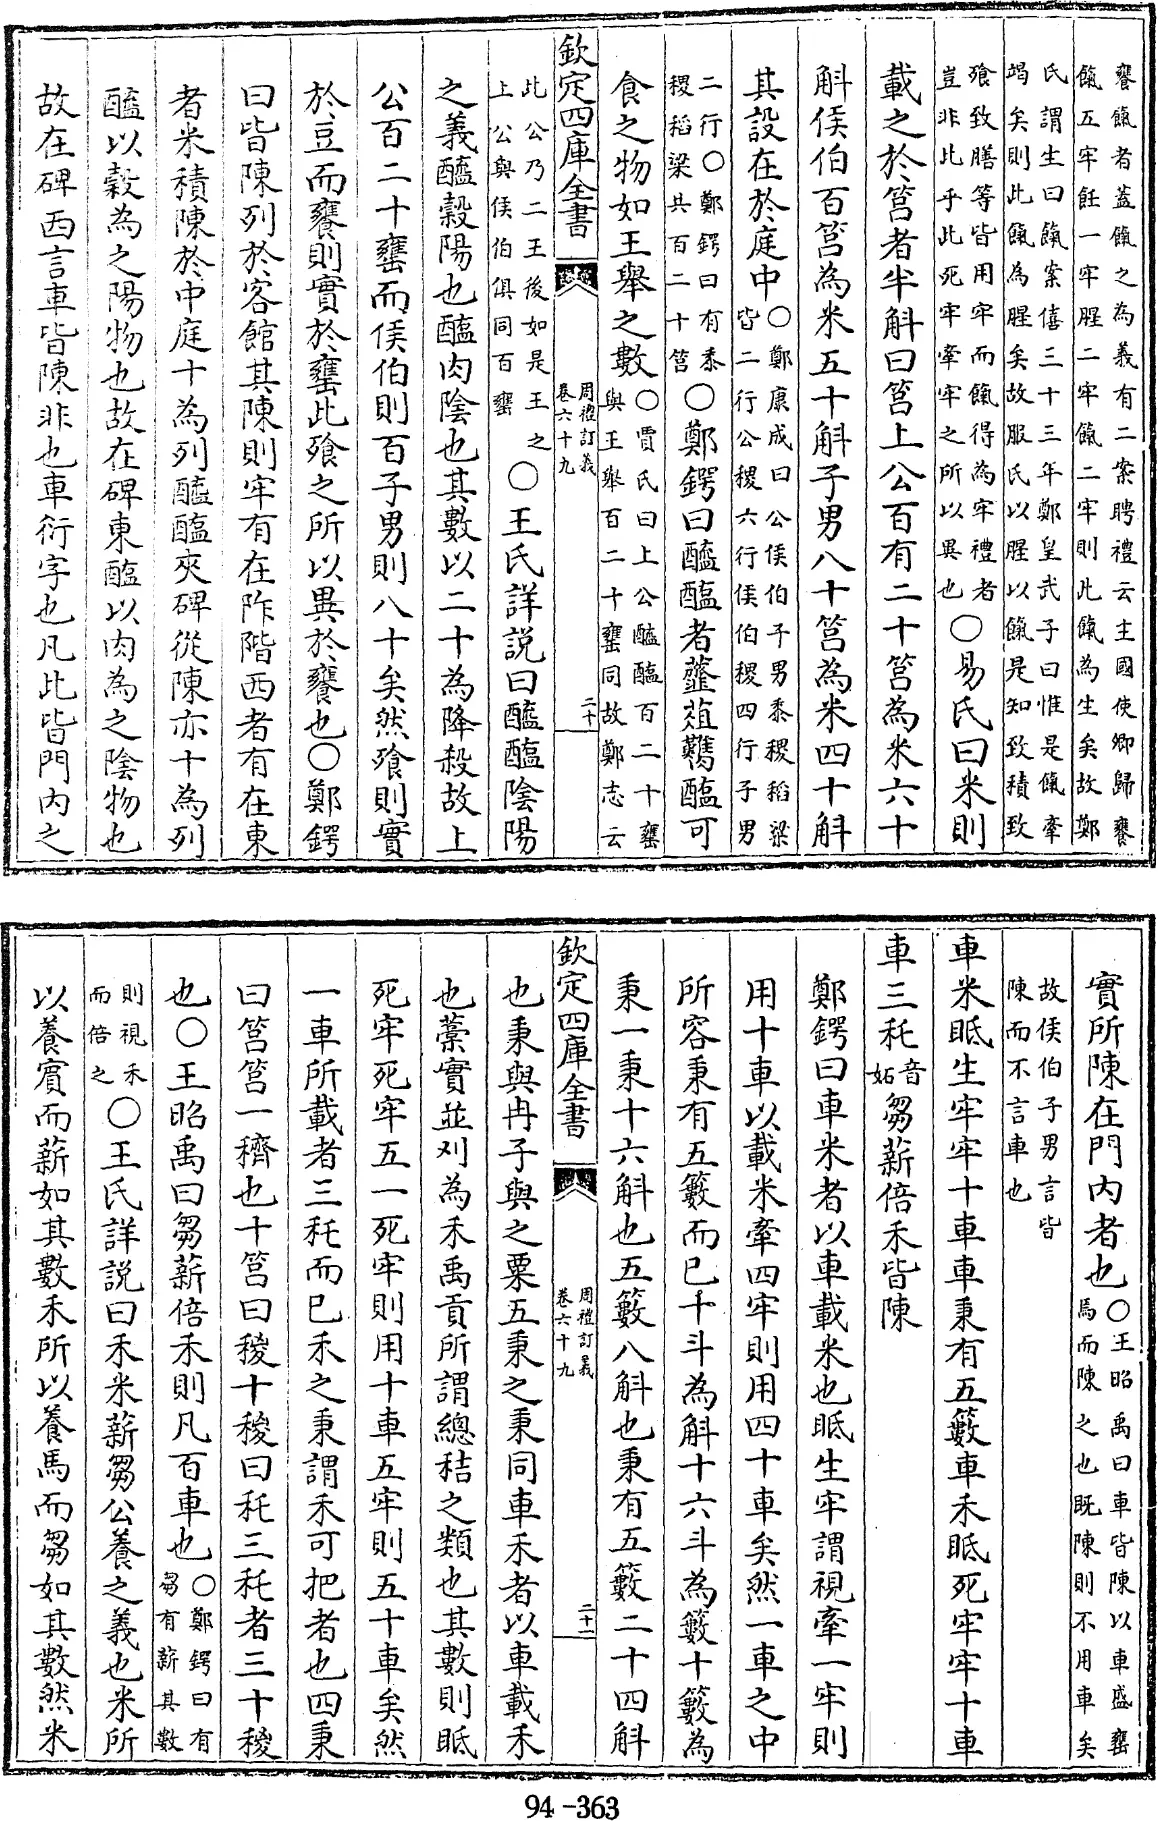 饔餼者蓋餼之為義有二案聘禮云主國使卿歸饔
餼五牢飪一牢腥二牢餼二牢則此餼為生矣故鄭
氏謂生曰餼案僖三十三年鄭皇武子曰惟是餼牽
竭矣則此餼為腥矣故服氏以腥以餼是知致積致
飱致膳等皆用牢而餼得為牢禮者
豈非此乎此死牢牽牢之所以異也○易氏曰米則
載之於筥者半斛曰筥上公百有二十筥為米六十
斛侯伯百筥為米五十斛子男八十筥為米四十斛
其設在於庭中○鄭康成曰公侯伯子男黍稷稻粱
皆二行公稷六行侯伯稷四行子男
二行○鄭鍔曰有黍
稷稻粱共百二十筥○鄭鍔曰醯醢者虀菹䴤醢可
食之物如王舉之數○賈氏曰上公醯醢百二十罋
與王舉百二十罋同故鄭志云
欽定四庫全書
周禮訂義
卷六十九
二十
此公乃二王後如是王之
上公與侯伯俱同百罋○王氏詳説曰醯醢陰陽
之義醯穀陽也醢肉陰也其數以二十為降殺故上
公百二十罋而侯伯則百子男則八十矣然飱則實
於豆而饔則實於罋此飱之所以異於饔也○鄭鍔
曰皆陳列於客館其陳則牢有在阼階西者有在東
者米積陳於中庭十為列醯醢夾碑從陳亦十為列
醯以穀為之陽物也故在碑東醢以肉為之陰物也
故在碑西言車皆陳非也車衍字也凡此皆門内之
實所陳在門内者也○王昭禹曰車皆陳以車盛罋
馬而陳之也既陳則不用車矣
故侯伯子男言皆
陳而不言車也
車米眡生牢牢十車車秉有五籔車禾眡死牢牢十車
車三秅音
妬芻薪倍禾皆陳
鄭鍔曰車米者以車載米也眡生牢謂視牽一牢則
用十車以載米牽四牢則用四十車矣然一車之中
所容秉有五籔而已千斗為斛十六斗為籔十籔為
秉一秉十六斛也五籔八斛也秉有五籔二十四斛
欽定四庫全書
周禮訂義
卷六十九
二十一
也秉與冉子與之粟五秉之秉同車禾者以車載禾
也藁實並刈為禾禹貢所謂總秸之類也其數則眡
死牢死牢五一死牢則用十車五牢則五十車矣然
一車所載者三秅而已禾之秉謂禾可把者也四秉
曰筥筥一穧也十筥曰稯十稯曰秅三秅者三十稯
也○王昭禹曰芻薪倍禾則凡百車也○鄭鍔曰有
芻有薪其數
則視禾
而倍之○王氏詳説曰禾米薪芻公養之義也米所
以養賓而薪如其數禾所以養馬而芻如其數然米
94-363